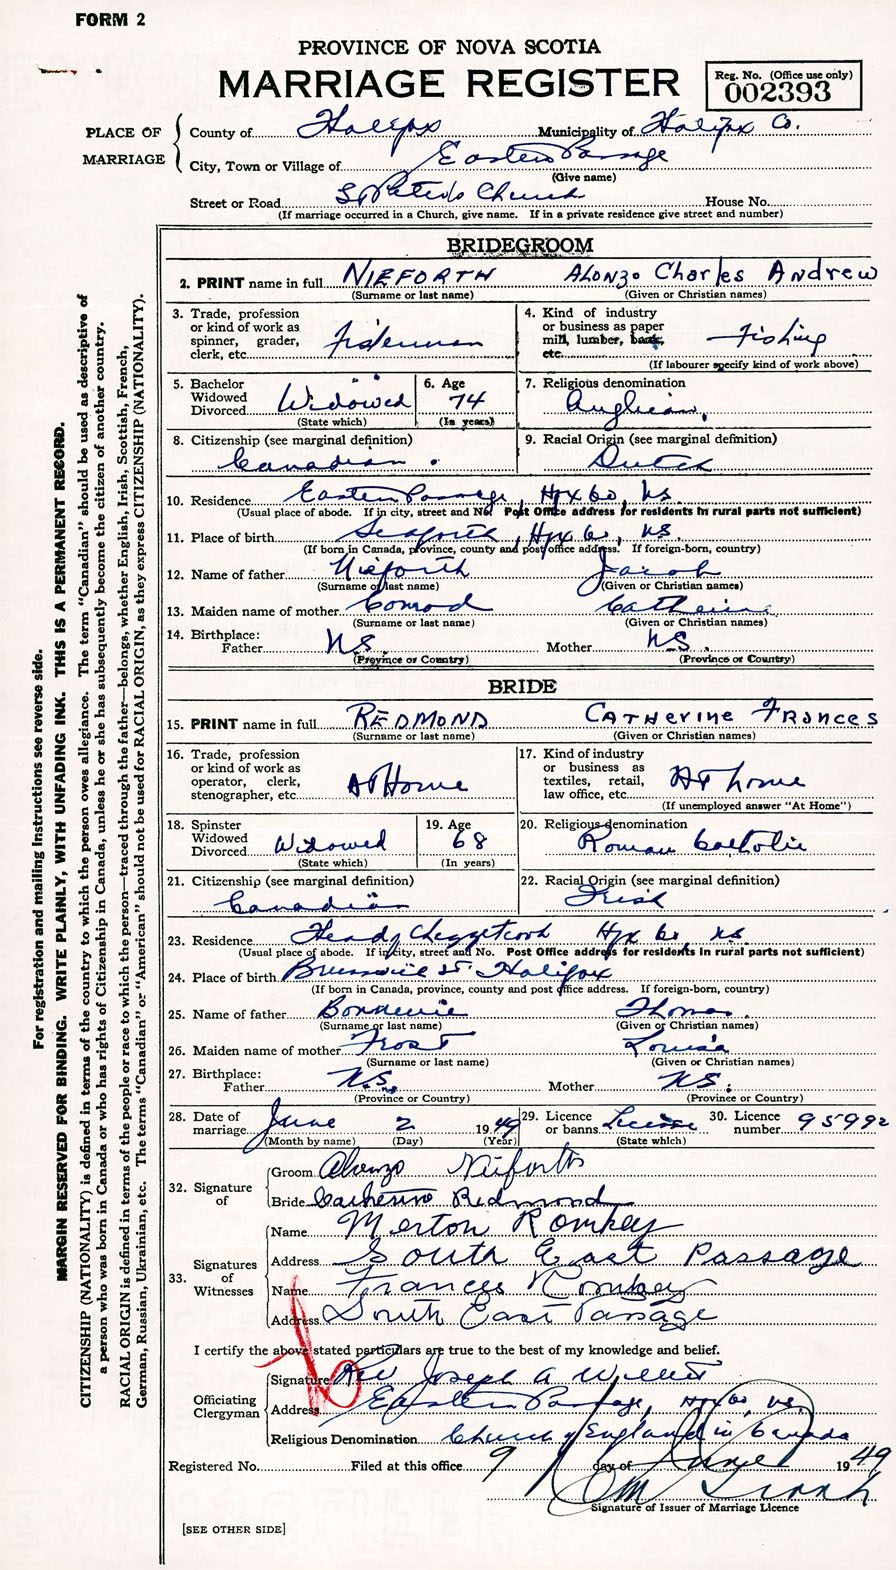 FORM 2
PROVINCE OF NOVA SCOTIA
MARRIAGE REGISTER
Reg. No. (Office use only)
002393
PLACE OF MARRIAGE
County of Halifax Municipality of Halifax Co.
City, Town or Village of Eastern Passage
(Give name)
Street or Road St Peter's Church House No.
(If marriage occurred in a Church, give name. If in a private residence give street and number)
BRIDEGROOM
2. PRINT name in full NIEFORTH ALONZO Charles Andrew
(Surname or last name) (Given or Christian names)
3. Trade, profession or kind of work as spinner, grader, clerk, etc. Fisherman
4. Kind of industry or business as paper mill, lumber, bank, etc. Fishing
(If labourer specify kind of work above)
5. Bachelor Widowed Divorced Widowed
(State which)
6. Age 74
(In years)
7. Religious denomination Anglican
8. Citizenship (see marginal definition) Canadian
9. Racial Origin (see marginal definition) Dutch
10. Residence Eastern Passage, Hfx Co, NS
(Usual place of abode. If in city, street and No. Post Office address for residents in rural parts not sufficient)
11. Place of birth Seaforth, Hfx Co, NS.
(If born in Canada, province, county and post office address. If foreign-born, country)
12. Name of father Nieforth Jacob
(Surname or last name) (Given or Christian names)
13. Maiden name of mother Conrod Catherine
(Surname or last name) (Given or Christian names)
14. Birthplace: Father N.S. Mother N.S.
(Province or Country) (Province or Country)
BRIDE
15. PRINT name in full REDMOND CATHERINE FRANCES
(Surname or last name) (Given or Christian names)
16. Trade, profession or kind of work as operator, clerk, stenographer, etc. At Home
17. Kind of industry or business as textiles, retail, law office, etc. At home
(If unemployed answer "At Home")
18. Spinster Widowed Divorced Widowed
(State which)
19. Age 68
(In years)
20. Religious denomination Roman Catholic
21. Citizenship (see marginal definition) Canadian
22. Racial Origin (see marginal definition) Irish
23. Residence Head of Chezzetcook Hfx Co NS
(Usual place of abode. If in city, street and No. Post Office address for residents in rural parts not sufficient)
24. Place of birth Brunswick St Halifax
(If born in Canada, province, county and post office address. If foreign-born, country)
25. Name of father Thomas
(Surname or last name) (Given or Christian names)
26. Maiden name of mother Frost Louisa
(Surname or last name) (Given or Christian names)
27. Birthplace: Father N.S. Mother N.S.
(Province or Country) (Province or Country)
28. Date of marriage June 2 1949
(Month by name) (Day) (Year)
29. Licence or banns License
(State which)
30. Licence number 95992
32. Signature of Groom Alonzo Nieforth
Bride Catherine Redmond
33. Signatures of Witnesses
Name Merton Romkey
Address South East Passage
Name Frances Romkey
Address South East Passage
I certify the above stated particulars are true to the best of my knowledge and belief.
Officiating Clergyman
Signature Rev Joseph A
Address Eastern Passage, Hfx Co, NS.
Religious Denomination Church of England in Canada
Registered No. Filed at this office 9 day of June 1949
Signature of Issuer of Marriage Licence
[SEE OTHER SIDE]
For registration and mailing instructions see reverse side.
MARGIN RESERVED FOR BINDING. WRITE PLAINLY, WITH UNFADING INK. THIS IS A PERMANENT RECORD.
CITIZENSHIP (NATIONALITY) is defined in terms of the country to which the person owes allegiance. The term "Canadian" should be used as descriptive of
a person who was born in Canada or who has rights of Citizenship in Canada, unless he or she has subsequently become the citizen of another country.
RACIAL ORIGIN is defined in terms of the people or race to which the person—traced through the father—belongs, whether English, Irish, Scottish, French,
German, Russian, Ukrainian, etc. The terms "Canadian" or "American" should not be used for RACIAL ORIGIN, as they express CITIZENSHIP (NATIONALITY).